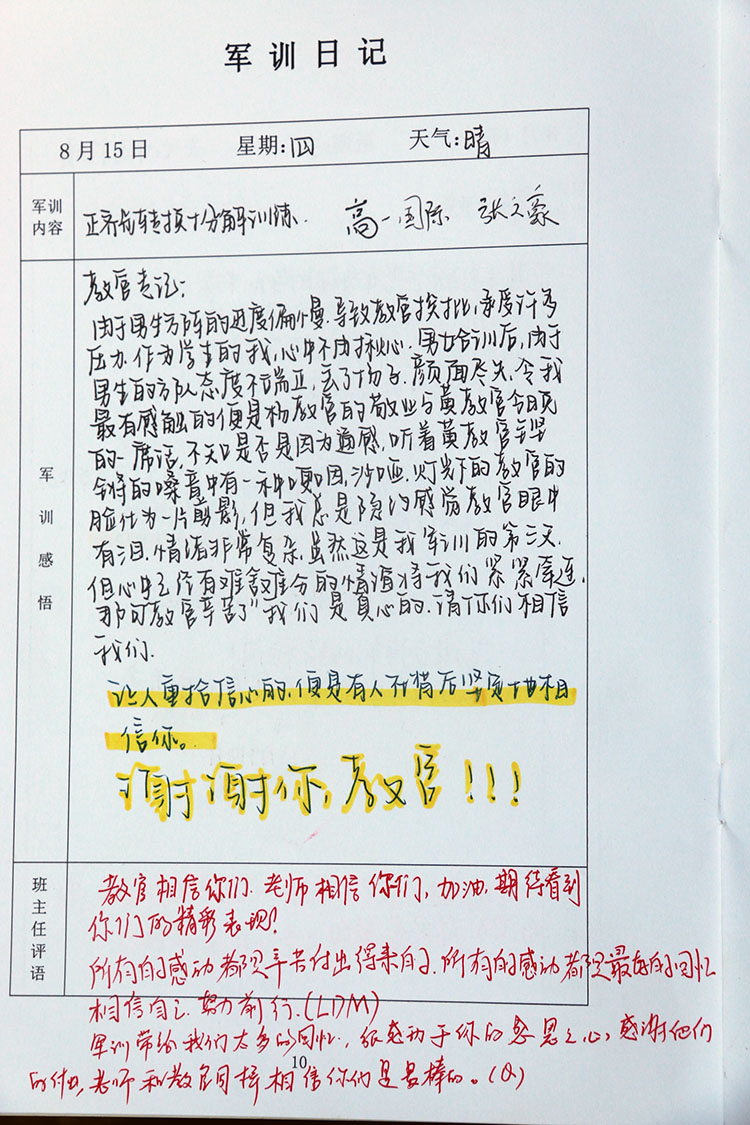 军训日记
8月15日 星期:四 天气:晴
军训内容
正齐步转换十分解训练. 高一国际 张之豪
军训感悟
教官专记:
由于男生方阵的进度偏慢.导致教官挨批,承受许多
压力.作为学生的我,心中不由揪心.男女合训后,由于
男生的方队态度不端正,丢了场子.颜面尽失.令我
最有感触的便是杨教官的敬业与黄教官今日晚
的一席话,不知是否是因为通感,听着黄教官铿
锵的嗓音中有一种哽咽,沙哑.灯光下的教官的
脸化为一片剪影,但我总是隐约感觉教官眼中
有泪.情绪非常复杂.虽然这是我军训的第三天.
但心中已经有难舍难分的情谊将我们紧紧牵连.
那句"教官辛苦了"我们是真心的.请你们相信
我们.
让人重拾信心的,便是有人在背后坚定地相
信你。
谢谢你,教官!!!
班主任评语
教官相信你们.老师相信你们,加油,期待看到
你们的精彩表现!
所有的感动都是辛苦付出得来的.所有的感动都是最好的回忆
相信自己.努力前行.(LDM)
军训带给我们太多的回忆,很感动于你的感恩之心,感谢他们
的付出,老师和教官同样相信你们是最棒的。(Q)
10